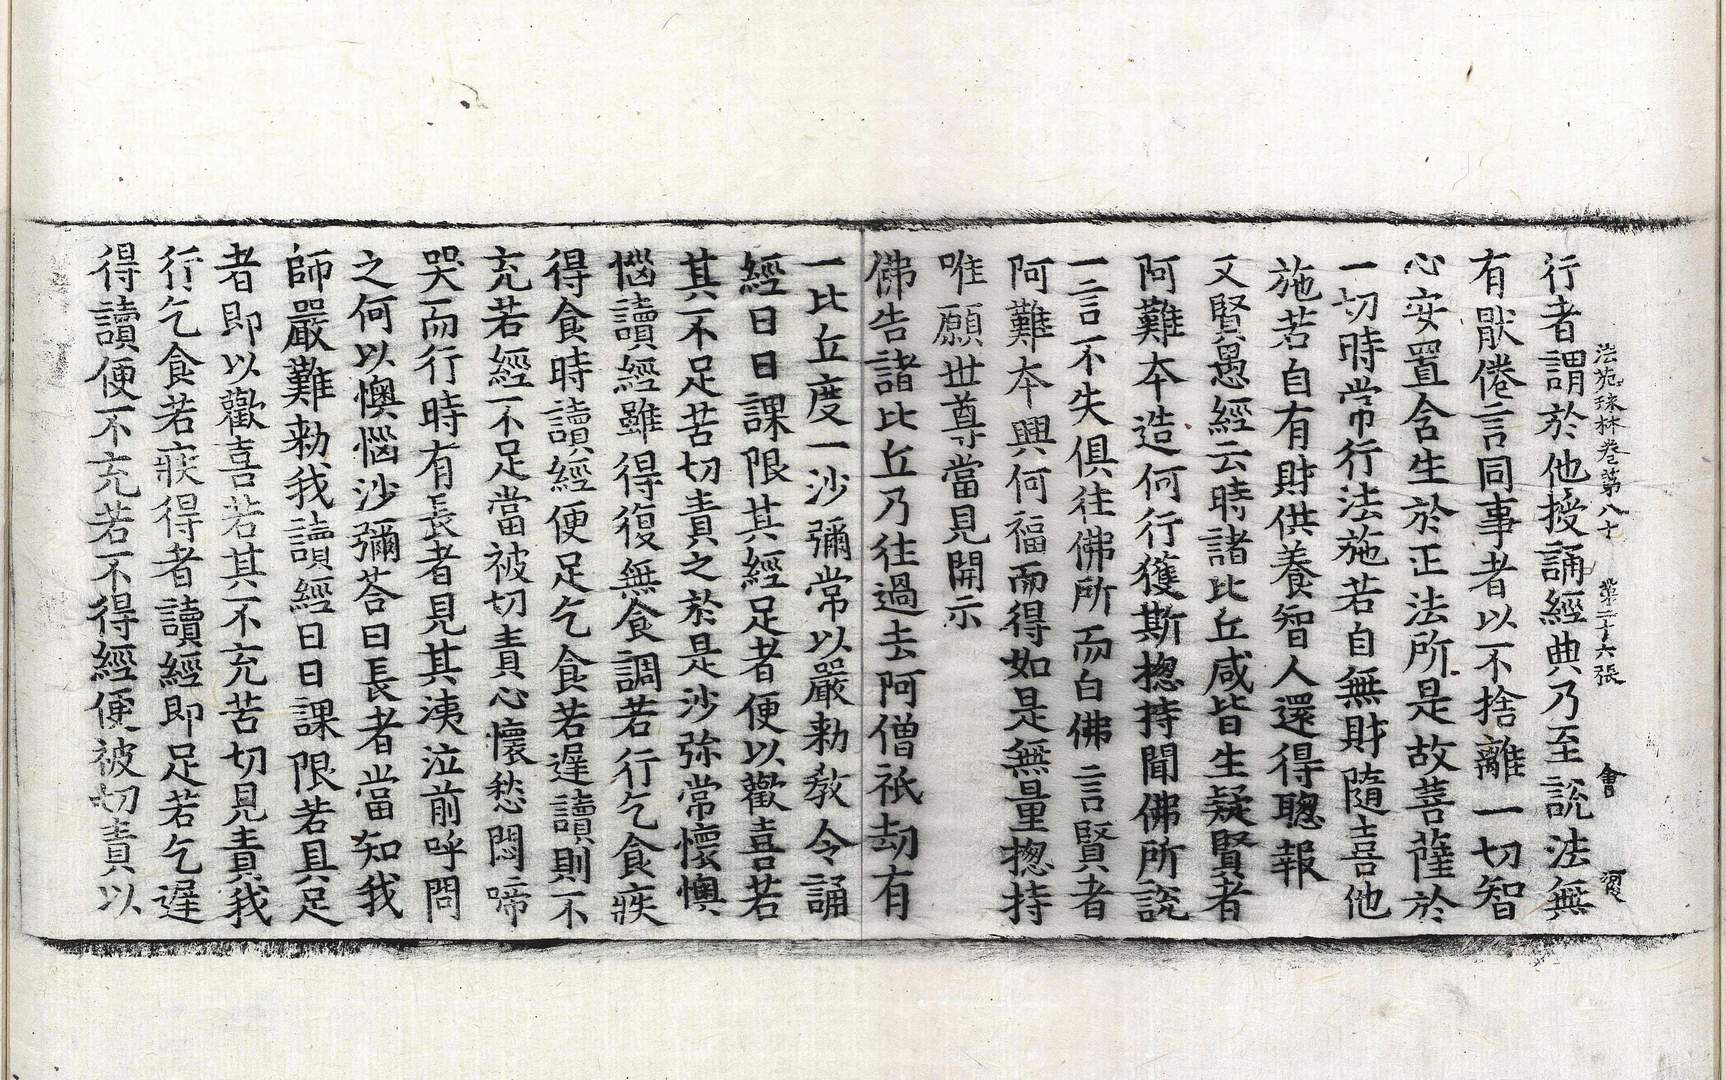 法苑珠林卷第八十　第二十六張　會
行者謂於他授誦經典乃至說法無
有猒倦言同事者以不捨離一切智
心安置含生於正法所是故菩薩於
一切時常行法施若自無財隨喜他
施若自有財供養智人還得聰報
又賢愚經云時諸比丘咸皆生疑賢者
阿難本造何行獲斯揔持聞佛所說
一言不失俱往佛所而白佛言賢者
阿難本興何福而得如是無量揔持
唯願世尊當見開示
佛告諸比丘乃往過去阿僧祇劫有
一比丘度一沙彌常以嚴勑教令誦
經日日課限其經足者便以歡喜若
其不足苦切責之於是沙弥常懷懊
惱讀經雖得復無食調若行乞食疾
得食時讀經便足乞食若遲讀則不
充若經不足當被切責心懷愁悶啼
哭而行時有長者見其洟泣前呼問
之何以懊惱沙彌荅曰長者當知我
師嚴難勑我讀經日日課限若具足
者即以歡喜若其不充苦切見責我
行乞食若疾得者讀經即足若乞遲
得讀便不充若不得經便被切責以